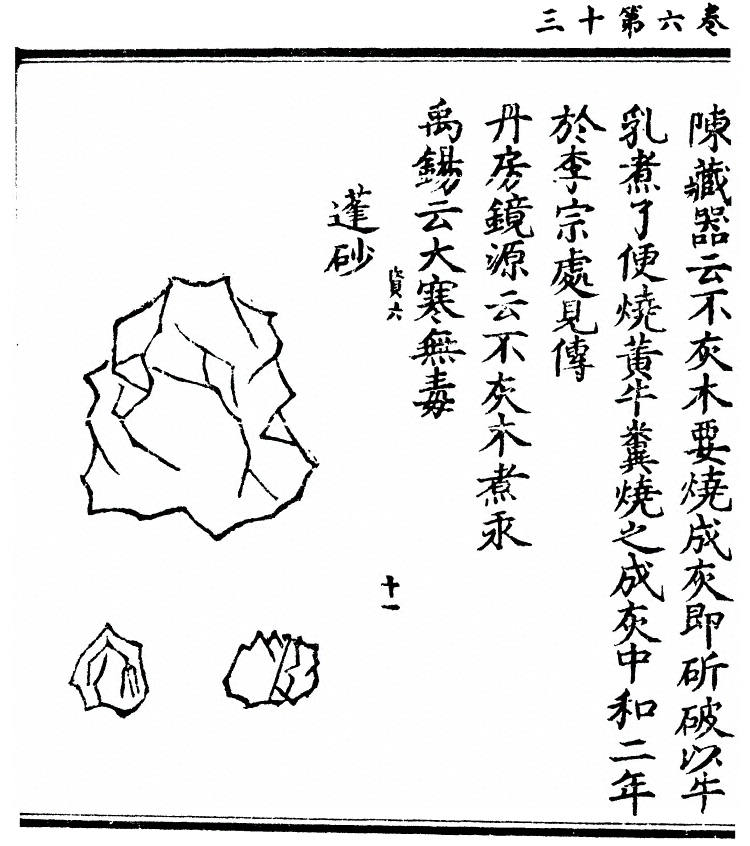 卷六第十三
陳藏器云不灰木要燒成灰即斫破以牛
乳煮了便燒黃牛糞燒之成灰中和二年
於李宗處見傳
丹房鏡源云不灰木煮汞
禹錫云大寒無毒
資六
十一
蓬砂